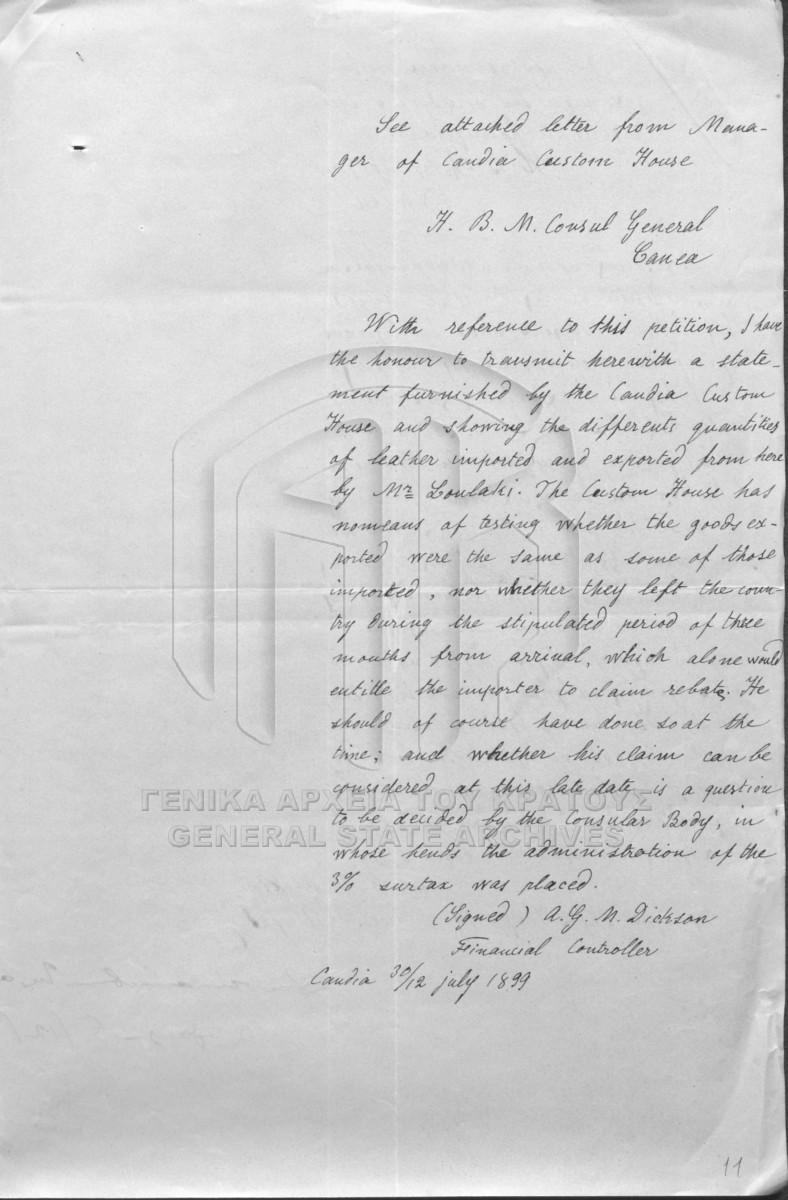 See attached letter from Mana-
ger of Candia Custom House
H. B. M. Consul General
Canea
With reference to this petition, I have
the honour to transmit herewith a state-
ment furnished by the Candia Custom
House and showing the differents quantities
of leather imported and exported from here
by Mr Loulaki. The Custom House has
nomeans of testing whether the goods ex-
ported were the same as some of those
imported, nor whether they left the coun-
try during the stipulated period of three
months from arrival, which alone would
entitle the importer to claim rebate. He
should of course have done so at the
time; and whether his claim can be
considered at this late date is a question
ΓΕΝΙΚΑ ΑΡΧΕΙΑ ΤΟΥ ΚΡΑΤΟΥΣ
to be decided by the Consular Body, in
GENERAL STATE ARCHIVES
whose hends the administration of the
3% surtax was placed.
(Signed) A. G. M. Dickson
Financial Controller
Candia 30/12 july 1899
11